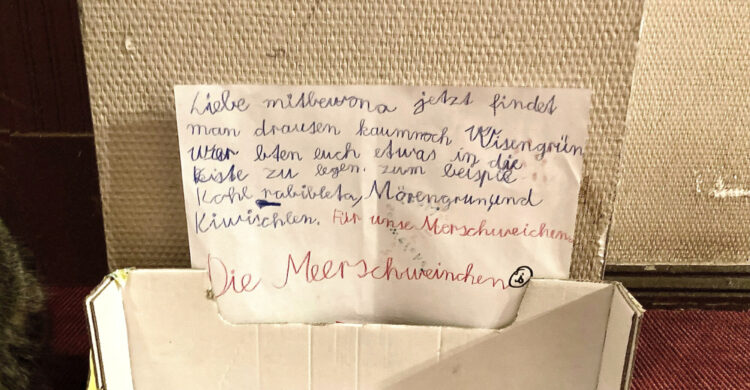 Liebe mitbewona jetzt findet
man drausen kaumnoch Wisengrün
wier bten euch etwas in die
Kiste zu legen. zum beispiel
Kohl rabibleta, Mörengrün,und
Kiwischlen. Für unse Merschweichen.
Die Meerschweinchen